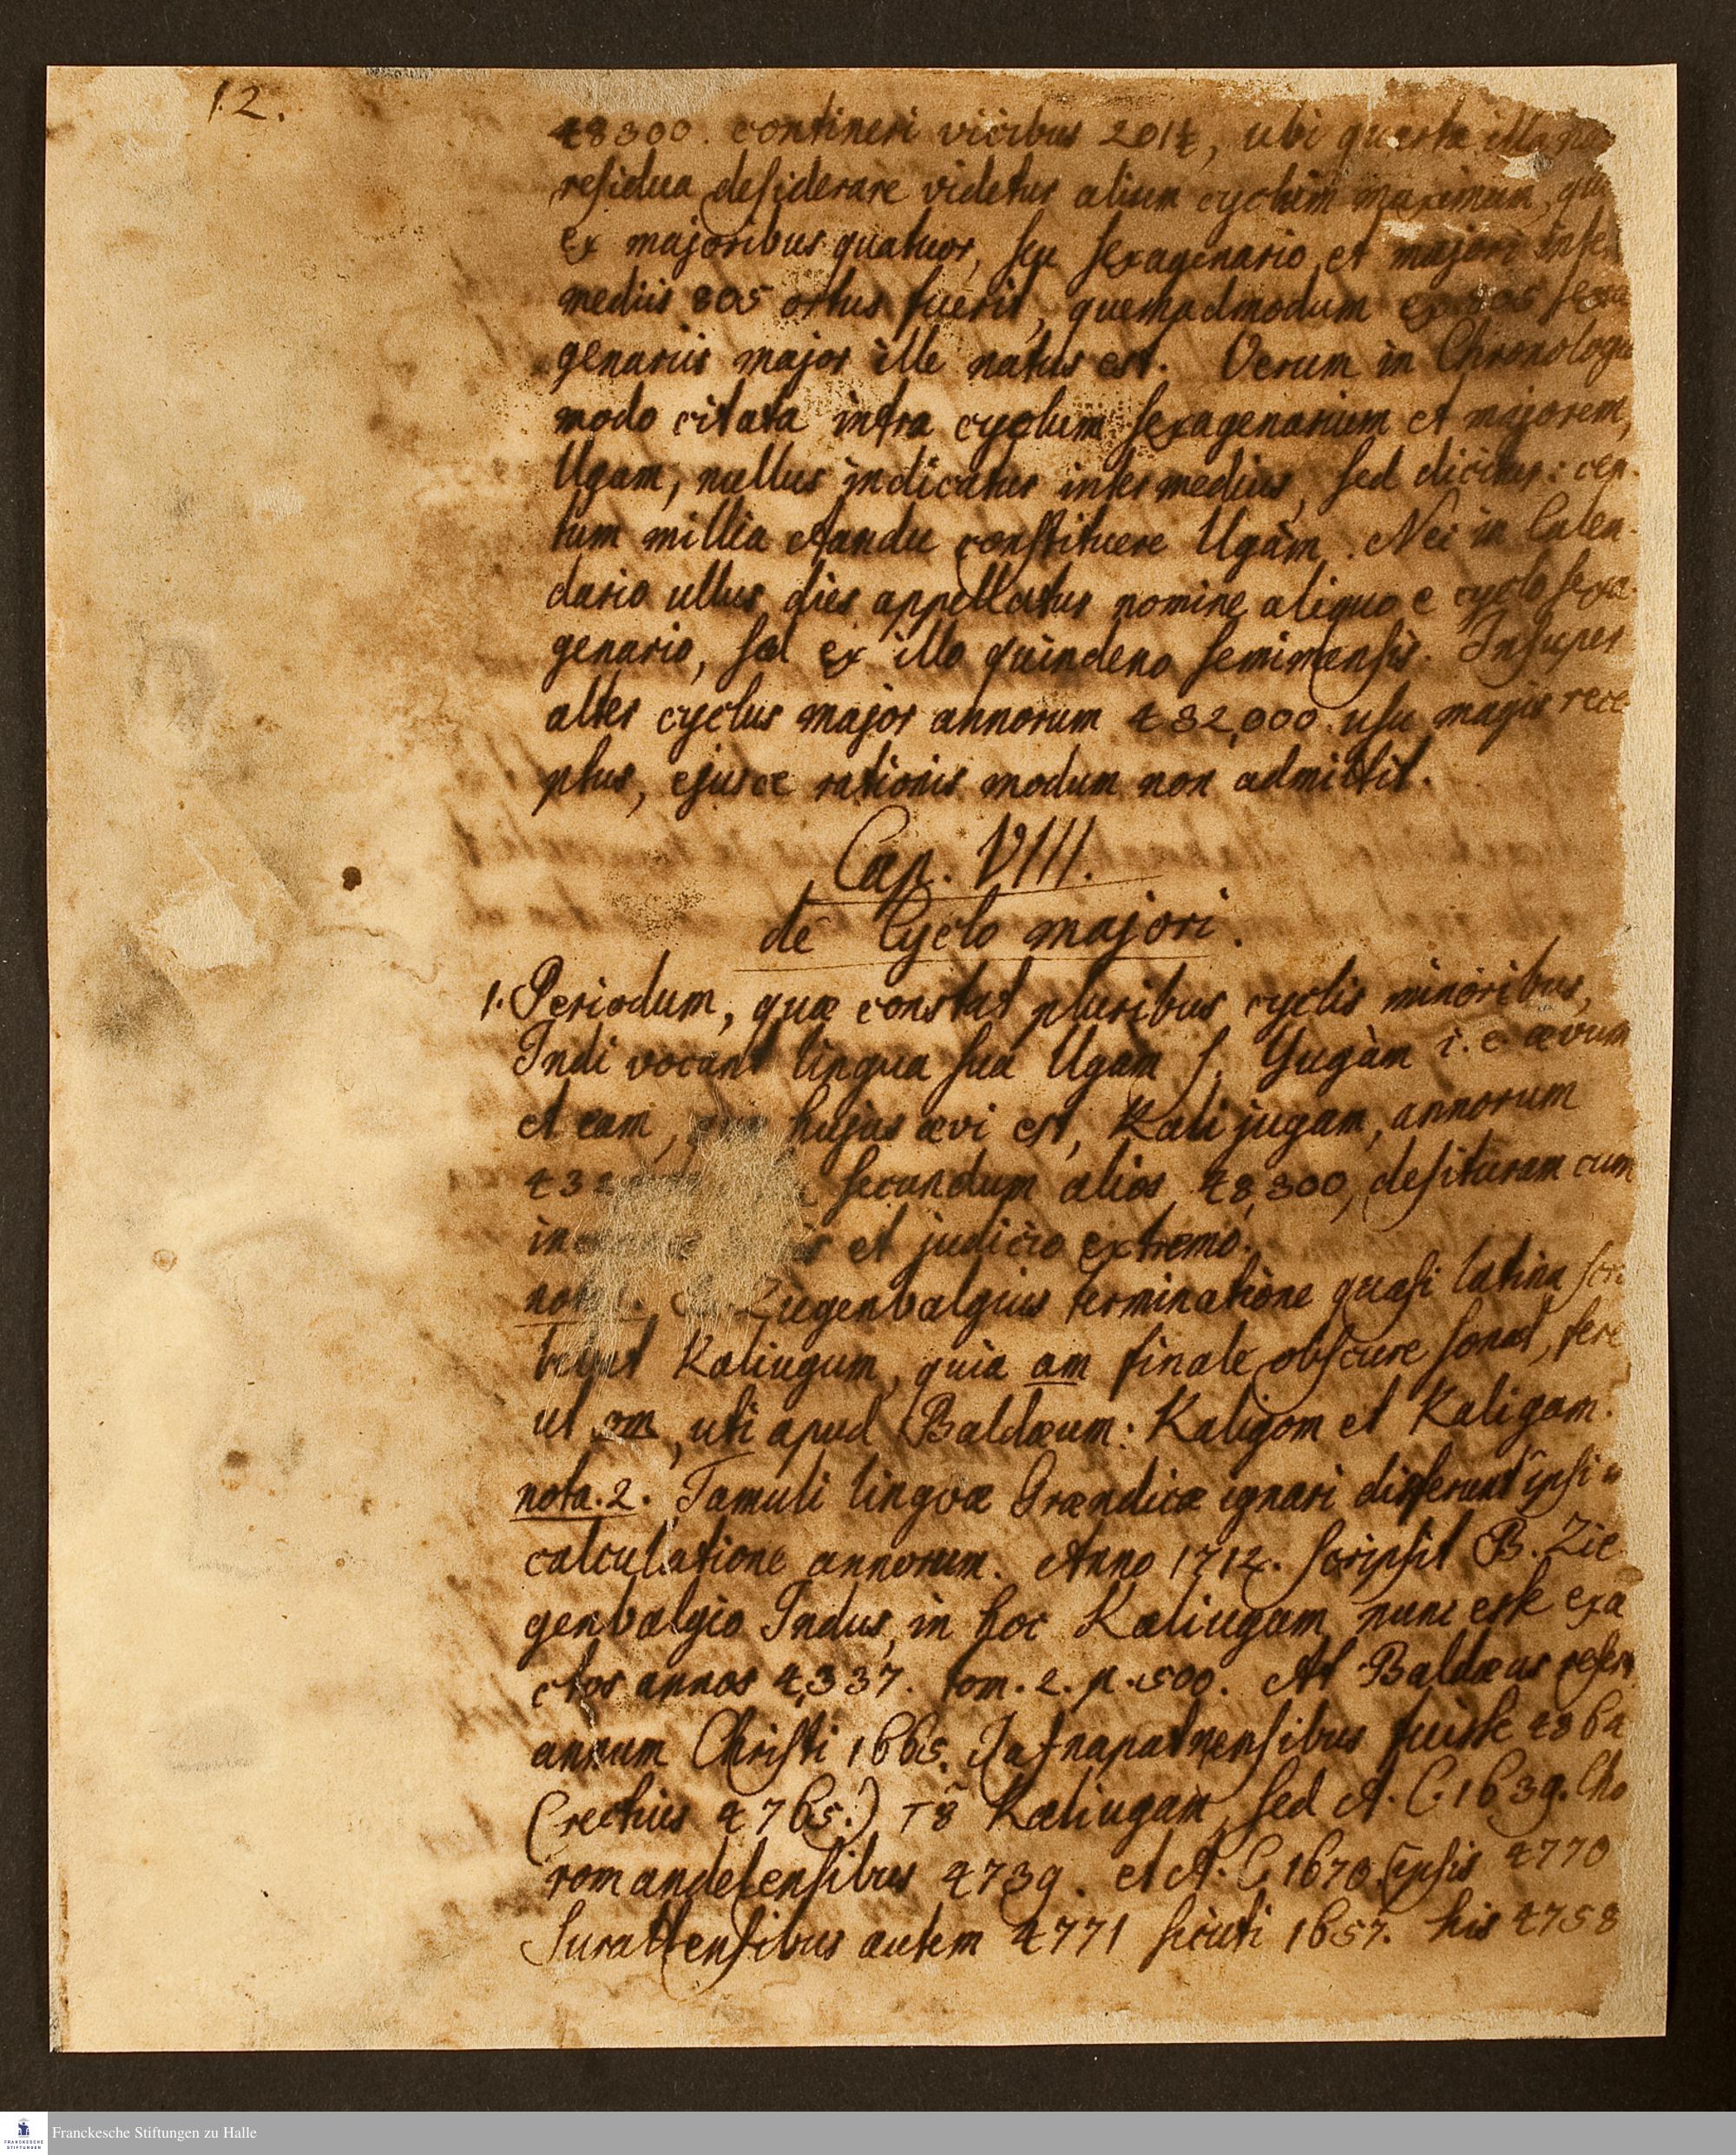 12.
48300. contineri vicibus 201¼, ubi quarta illa
residua desiderare videtur alium cyclum maximum,
ex majoribus quatuor, seu sexagenario et majori
mediis 805 ortus fuerit, quemadmodum ex 805 sexa
genariis major ille natus est. Verum in Chronologia
modo citata intra cyclum sexagenarium et majorem,
Ugam, nullus indicatur intermedius, sed dicitur: cen-
tum millia Aandu constituere Ugàm. Nec in Calen-
dario ullus dies appellatur nomine aliquo e cyclo sexa-
genario, sed ex illo quindeno semimensis. Insuper
alter cyclus major annorum 432,000. usu magis rece
ptus, ejusce rationis modum non admittit.
Cap. VIII.
de Cyclo majori.
1. Periodum, quæ constat pluribus cyclis minoribus,
Indi vocant lingua sua Ugam s. Yugàm i. e. ævum
et eam, quæ hujus ævi est, Kalijugam, annorum
secundum alios 48,300, desituram cum
et judicio extremo.
Ziegenbalgius terminatione quasi latina scri
Kaliugum, quia am finale obscure sonat, fere
ut om, uti apud Baldæum: Kaligom et Kaligam.
nota. 2. Tamuli lingvæ Grændicæ ignari differunt ipsi
calculatione annorum. Anno 1712. scripsit B. Zie
genbalgio Indus, in hoc Kaliugam nunc esse exa
ctos annos 4,337. tom. 2. p. 500. At Baldæus
annum Christi 1665. Jafnapatnensibus fuisse
(rectius 4765.) Kaliugam, sed A. C. 1639. Cho
romandelensibus 4739. et A. C. 1670. ipsis 4770
Surattensibus autem 4771 sicuti 1657. his 4758
Franckesche Stiftungen zu Halle
FRANCKESCHE
STIFTUNGEN